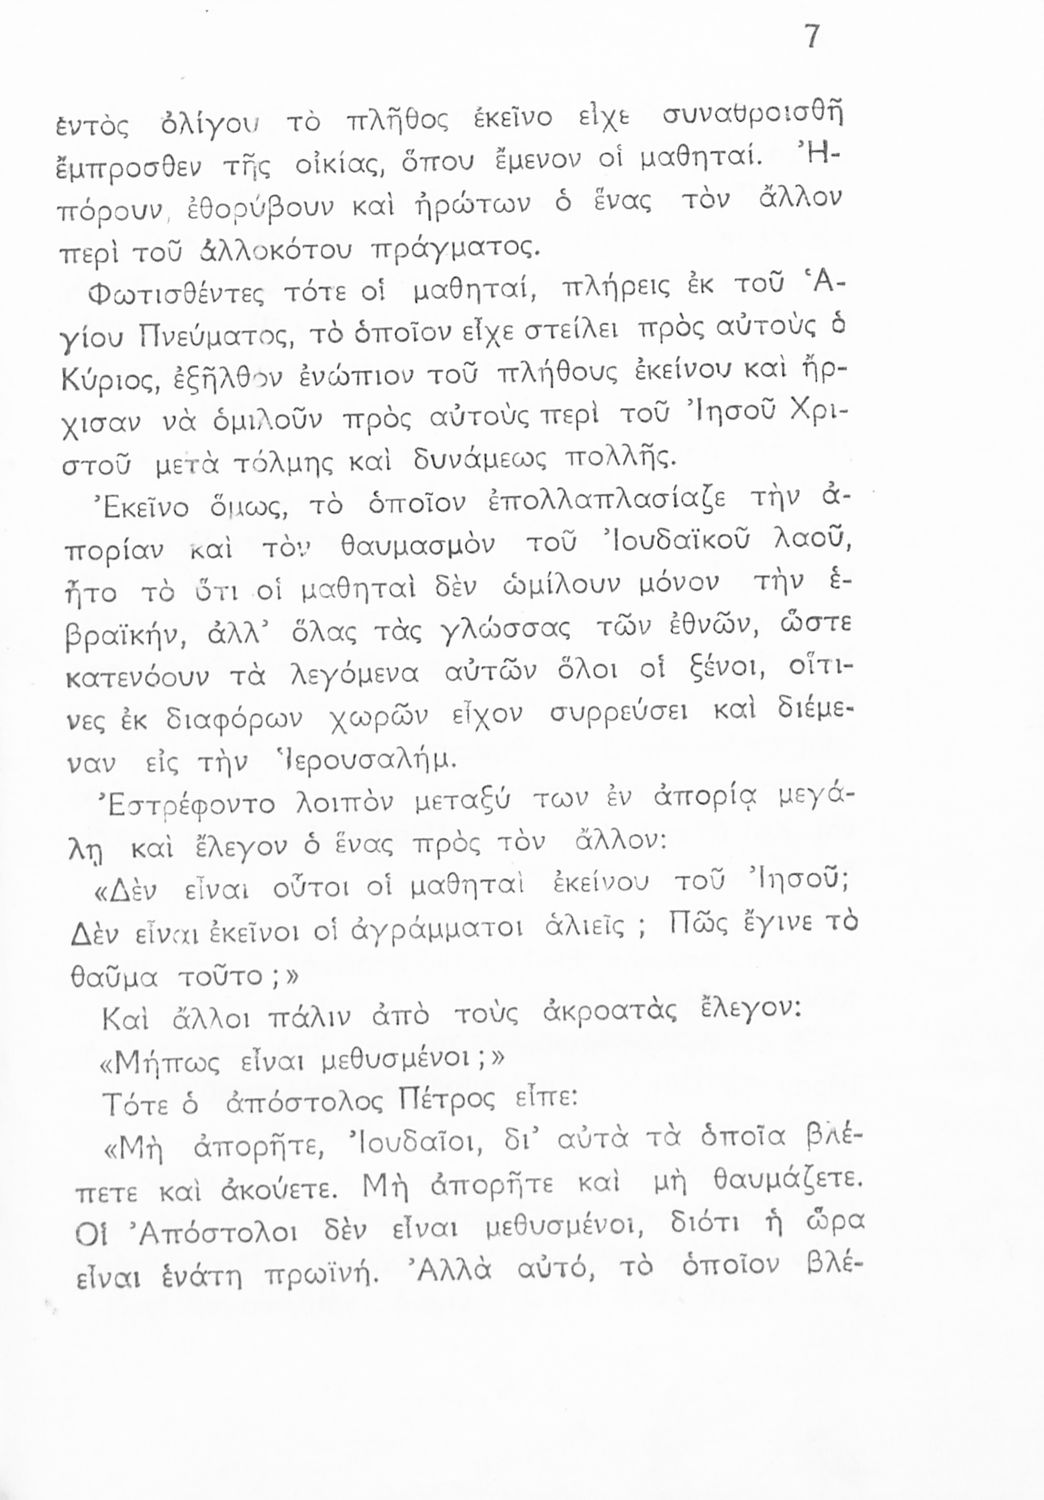 7
ἐντὸς ὀλίγου τὸ πλῆθος ἐκεῖνο εἶχε συναθροισθῆ
ἔμπροσθεν τῆς οἰκίας, ὅπου ἔμενον οἱ μαθηταί. Ἠ-
πόρουν, ἐθορύβουν καὶ ἠρώτων ὁ ἕνας τὸν ἄλλον
περὶ τοῦ ἀλλοκότου πράγματος.
Φωτισθέντες τότε οἱ μαθηταί, πλήρεις ἐκ τοῦ Ἁ-
γίου Πνεύματος, τὸ ὁποῖον εἶχε στείλει πρὸς αὐτοὺς ὁ
Κύριος, ἐξῆλθον ἐνώπιον τοῦ πλήθους ἐκείνου καὶ ἤρ-
χισαν νὰ ὁμιλοῦν πρὸς αὐτοὺς περὶ τοῦ Ἰησοῦ Χρι-
στοῦ μετὰ τόλμης καὶ δυνάμεως πολλῆς.
Ἐκεῖνο ὅμως, τὸ ὁποῖον ἐπολλαπλασίαζε τὴν ἀ-
πορίαν καὶ τὸν θαυμασμὸν τοῦ Ἰουδαϊκοῦ λαοῦ,
ἦτο τὸ ὅτι οἱ μαθηταὶ δὲν ὡμίλουν μόνον τὴν ἑ-
βραϊκήν, ἀλλ’ ὅλας τὰς γλώσσας τῶν ἐθνῶν, ὥστε
κατενόουν τὰ λεγόμενα αὐτῶν ὅλοι οἱ ξένοι, οἵτι-
νες ἐκ διαφόρων χωρῶν εἶχον συρρεύσει καὶ διέμε-
ναν εἰς τὴν Ἱερουσαλήμ.
Ἐστρέφοντο λοιπὸν μεταξύ των ἐν ἀπορίᾳ μεγά-
λῃ καὶ ἔλεγον ὁ ἕνας πρὸς τὸν ἄλλον:
«Δὲν εἶναι οὗτοι οἱ μαθηταὶ ἐκείνου τοῦ Ἰησοῦ;
Δὲν εἶναι ἐκεῖνοι οἱ ἀγράμματοι ἁλιεῖς ; Πῶς ἔγινε τὸ
θαῦμα τοῦτο ;»
Καὶ ἄλλοι πάλιν ἀπὸ τοὺς ἀκροατὰς ἔλεγον:
«Μήπως εἶναι μεθυσμένοι ;»
Τότε ὁ ἀπόστολος Πέτρος εἶπε:
«Μὴ ἀπορῆτε, Ἰουδαῖοι, δι’ αὐτὰ τὰ ὁποῖα βλέ-
πετε καὶ ἀκούετε. Μὴ ἀπορῆτε καὶ μὴ θαυμάζετε.
Οἱ Ἀπόστολοι δὲν εἶναι μεθυσμένοι, διότι ἡ ὥρα
εἶναι ἑνάτη πρωϊνή. Ἀλλὰ αὐτό, τὸ ὁποῖον βλέ-